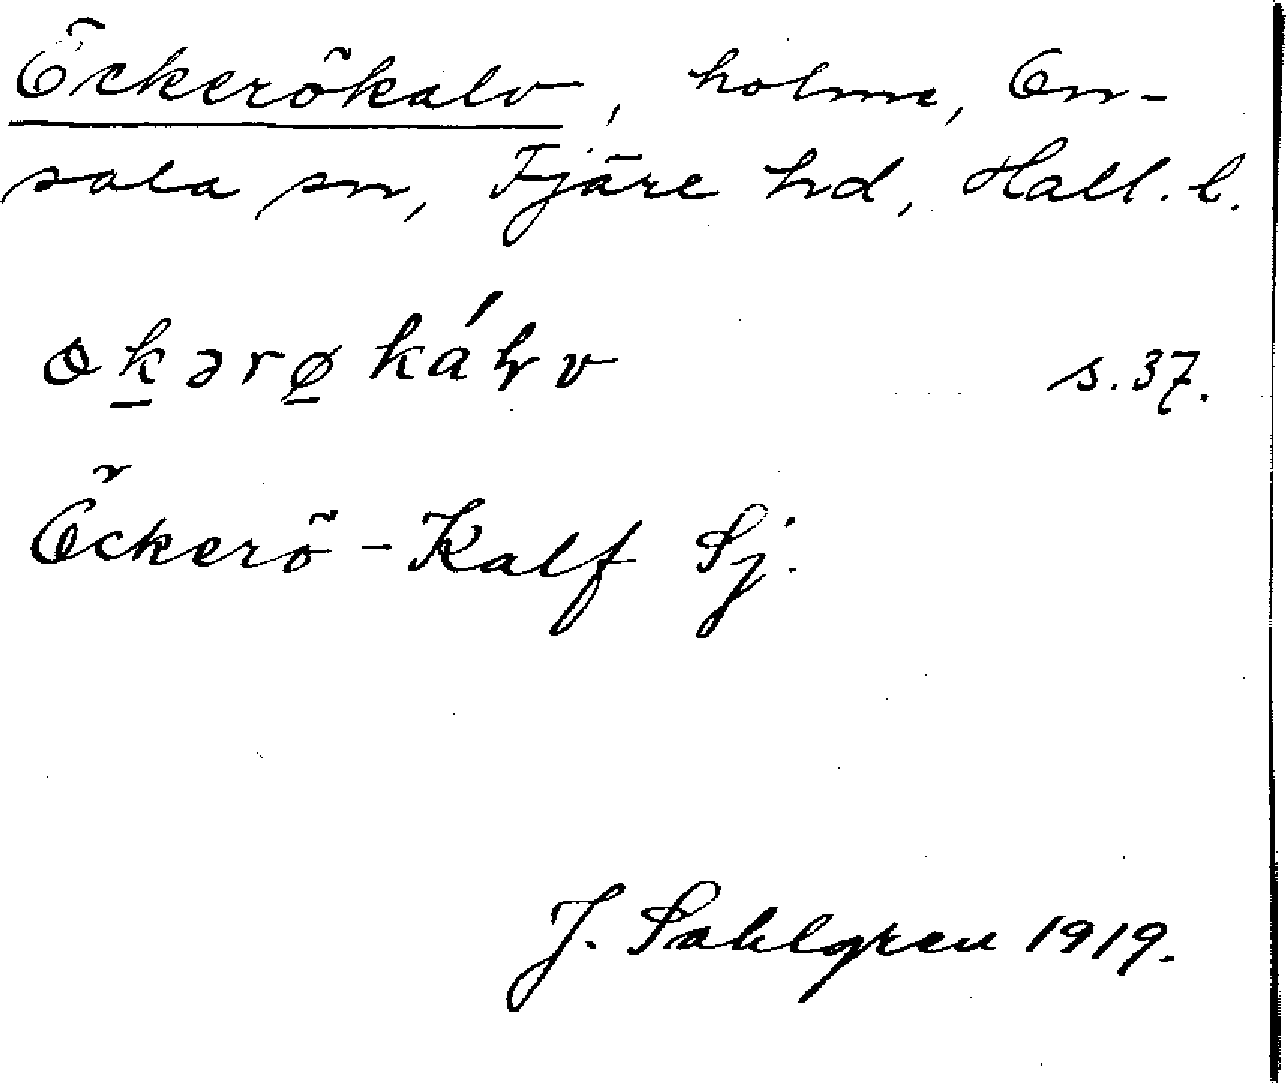 Öckerökalv, holme, On-
sala sn, Fjäre hd, Hall. l.
s. 37.
Öckerö-Kalf Sj.
J. Sahlgren 1919.